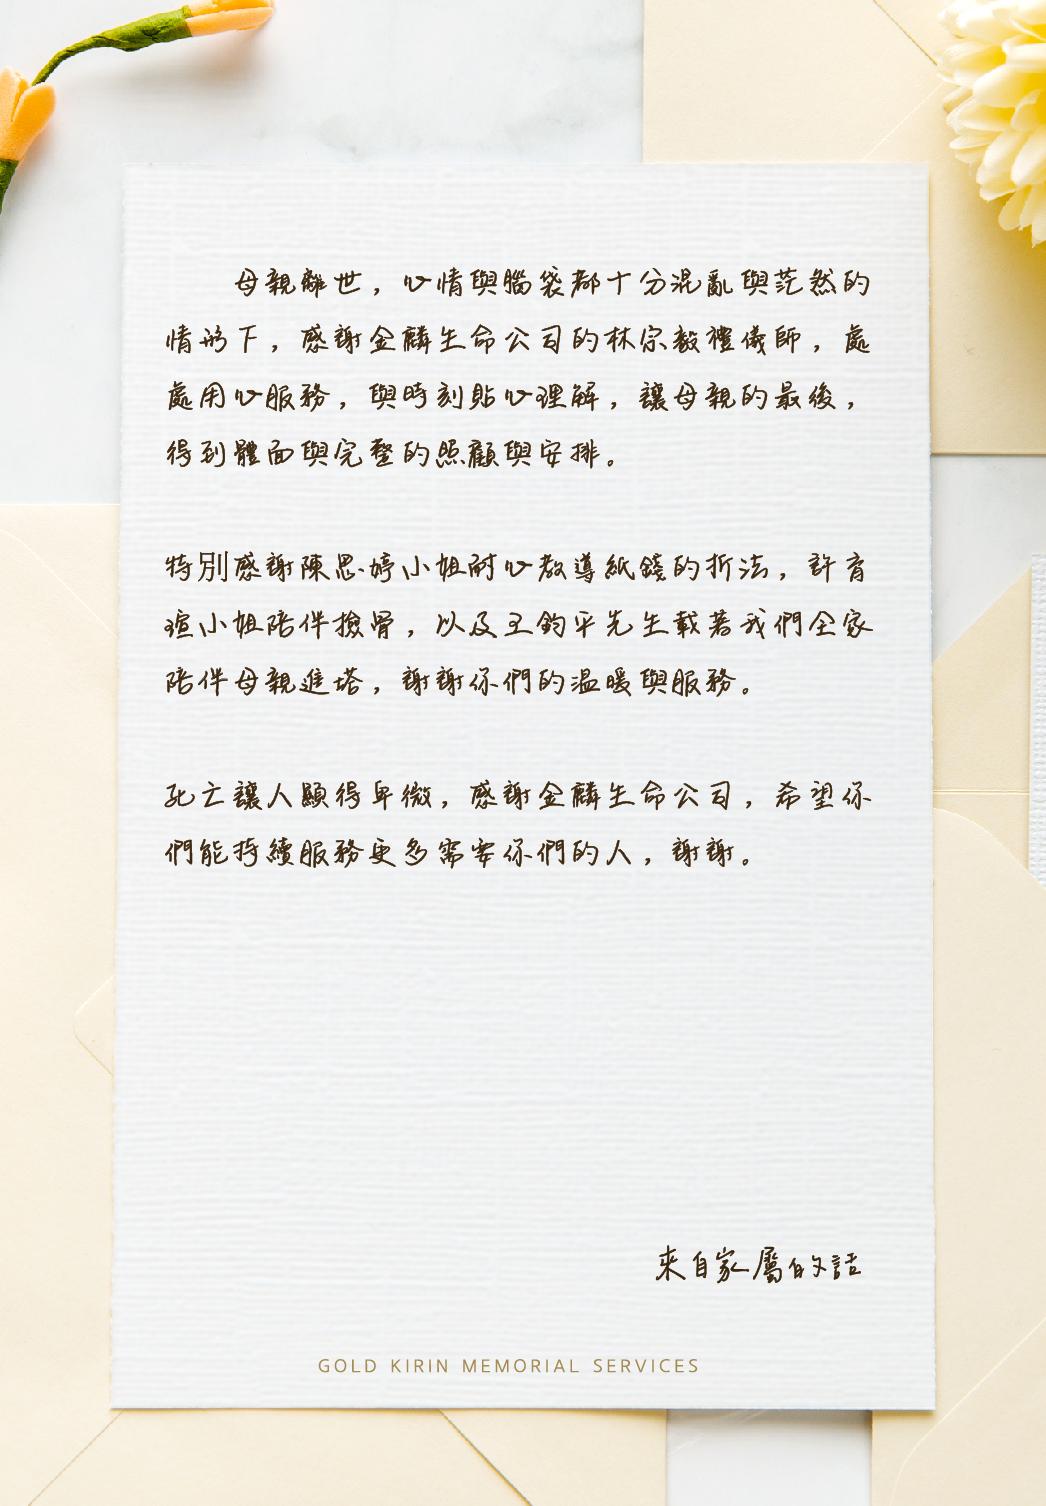 母親離世，心情與腦袋都十分混亂與茫然的
情形下，感謝金麟生命公司的林宗毅禮儀師，處
處用心服務，與時刻貼心理解，讓母親的最後，
得到體面與完整的照顧與安排。
特別感謝陳思婷小姐耐心教導紙錢的折法，許育
瑄小姐陪伴撿骨，以及王鈞平先生載著我們全家
陪伴母親進塔，謝謝你們的溫暖與服務。
死亡讓人顯得卑微，感謝金麟生命公司，希望你
們能持續服務更多需要你們的人，謝謝。
來自家屬的話
GOLD KIRIN MEMORIAL SERVICES